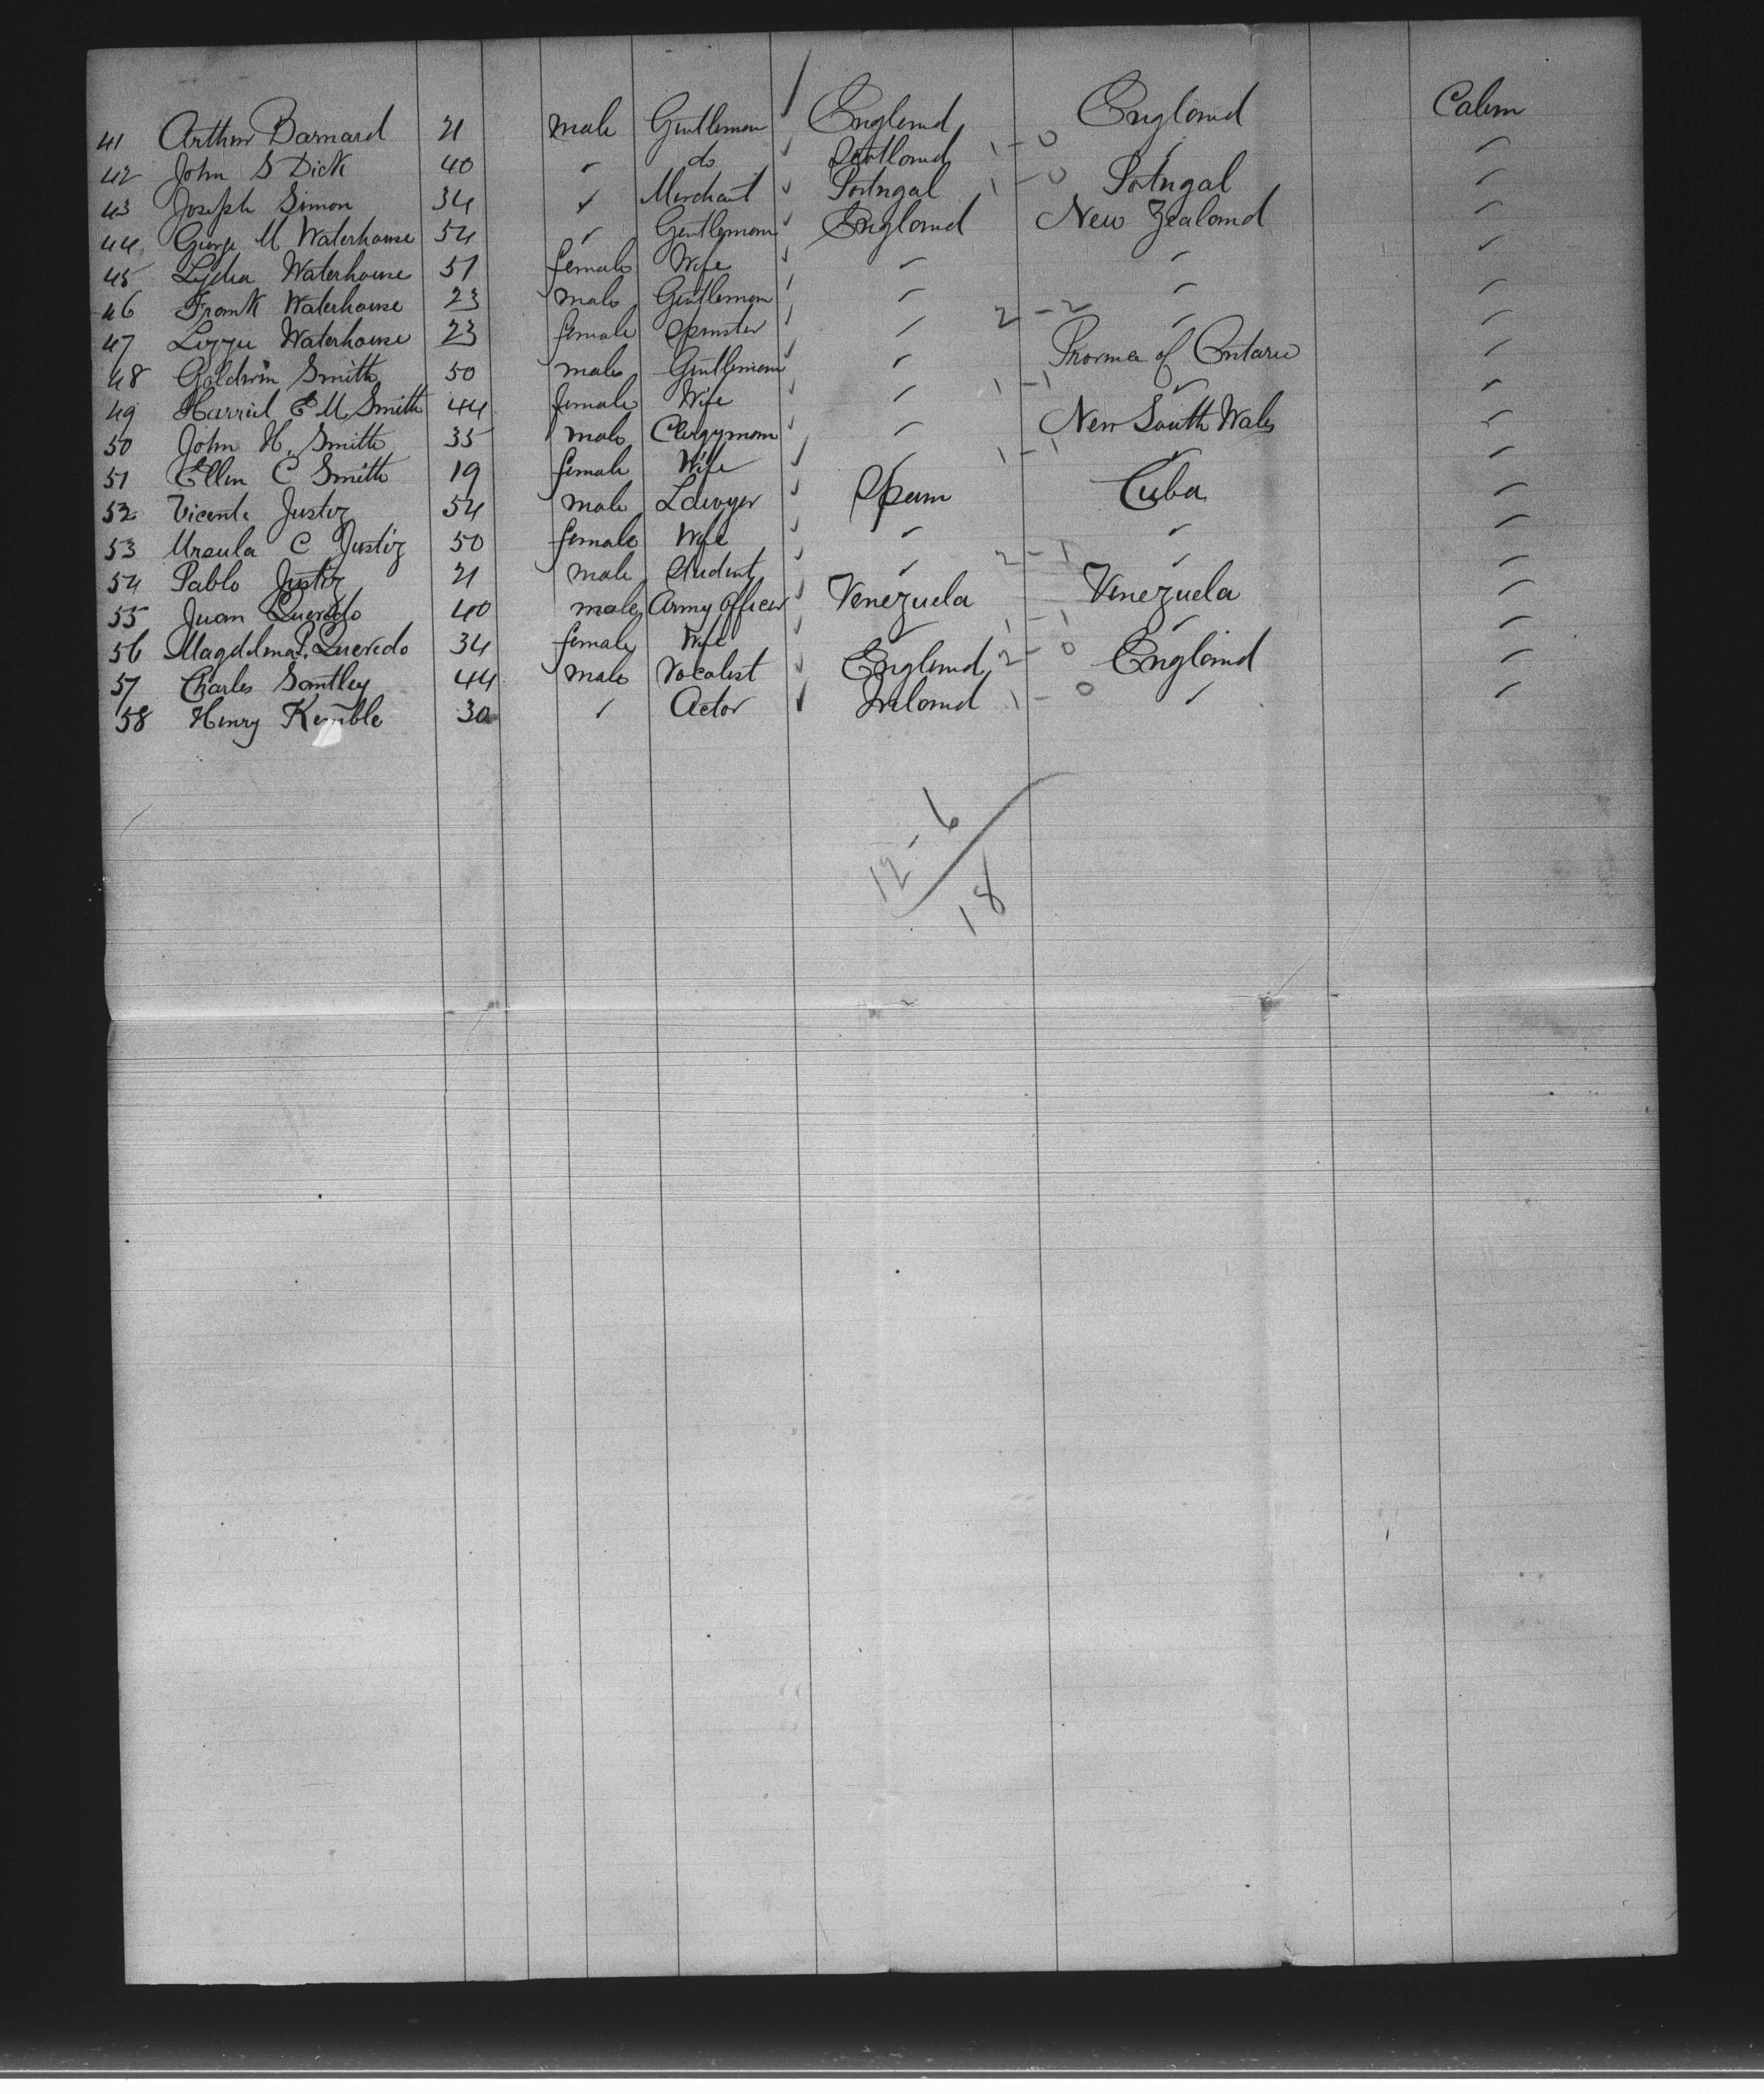 41 Arthur Barnard 21 male Gentleman England England Cabin
42 John S Dick 40 " do Scotland 1-0 " "
43 Joseph Simon 34 " Merchant Portugal 1-0 Portugal "
44 George M Waterhouse 54 " Gentleman England New Zealand "
45 Lydia Waterhouse 51 female Wife " " "
46 Frank Waterhouse 23 male Gentleman " " "
47 Lizzie Waterhouse 23 female Spinster " 2-2 " "
48 Goldwin Smith 50 male Gentleman " Province of Ontario "
49 Harriet E M Smith 44 female Wife " 1-1 " "
50 John H. Smith 35 male Clergyman " New South Wales "
51 Ellen C Smith 19 female Wife " 1-1 " "
52 Vicente Justiz 54 male Lawyer Spain Cuba "
53 Ursula C Justiz 50 female Wife " " "
54 Pablo Justiz 21 male Student " 2-1 " "
55 Juan Quevedo 40 male Army Officer Venezuela Venezuela "
56 Magdelena P. Quevedo 34 female Wife " 1-1 " "
57 Charles Santley 44 male Vocalist England 2-0 England "
58 Henry Kemble 30 " Actor Ireland 1-0 " "
12-6
18